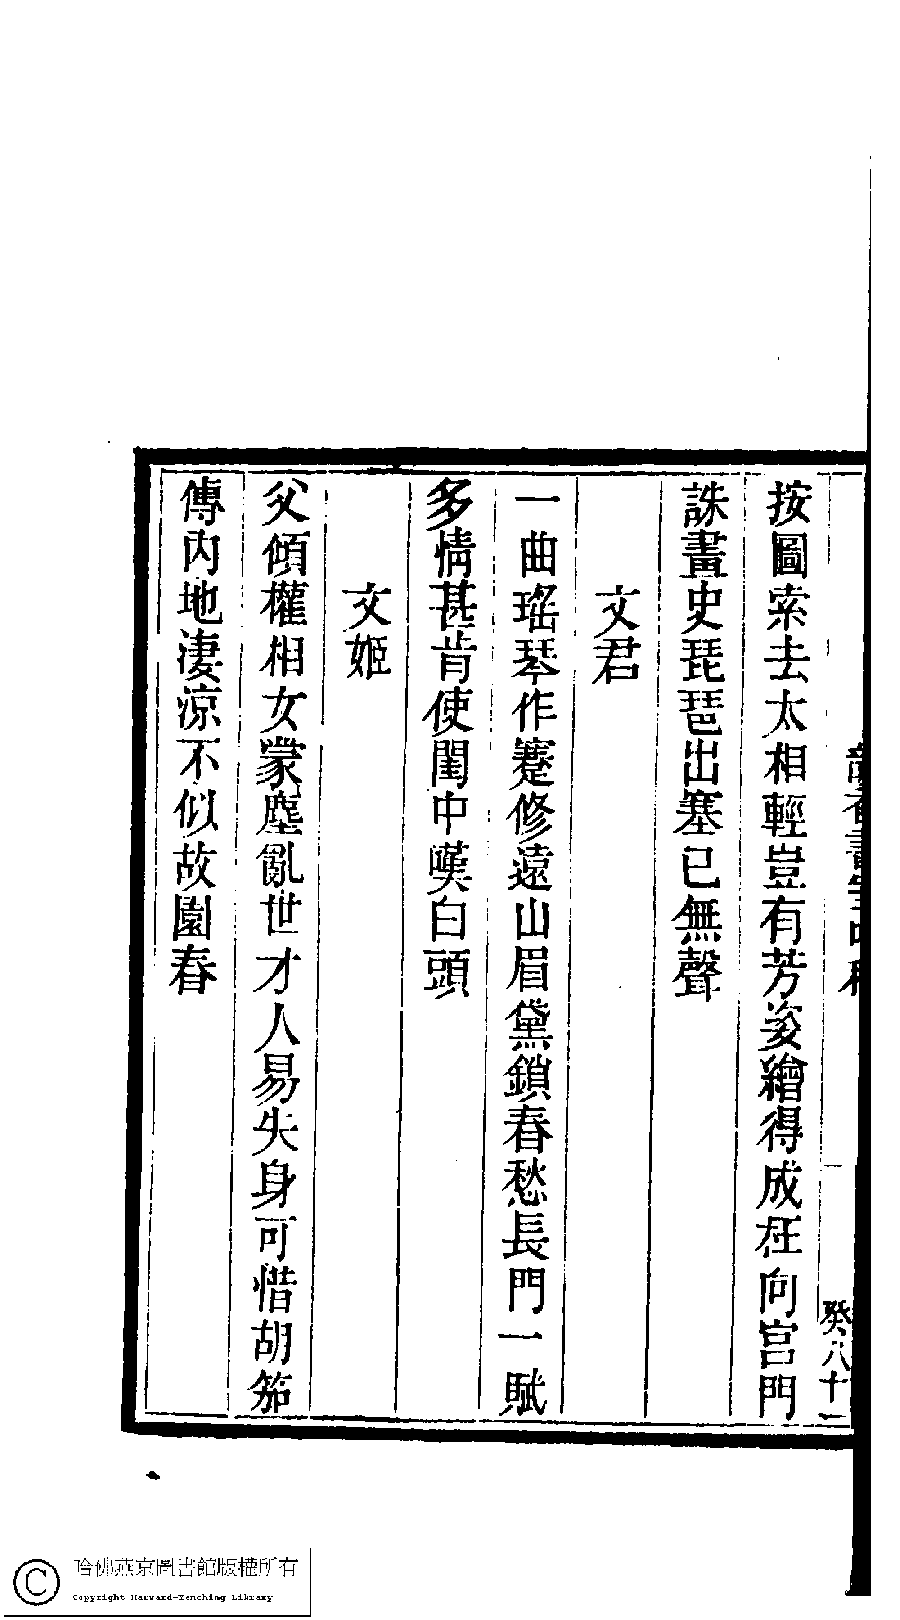 按圖索去太相輕豈有芳姿繪得成枉向宮門
誅畫史琵琶出塞已無聲
文君
一曲瑤琴作蹇修遠山眉黛鎖春愁長門一賦
多情甚肯使閨中嘆白頭
文姬
父傾權相女蒙塵亂世才人易失身可惜胡笳
傳內地淒涼不似故園春
癸八十一
哈佛燕京圖書館版權所有
Copyright Harvard-Yenching Library